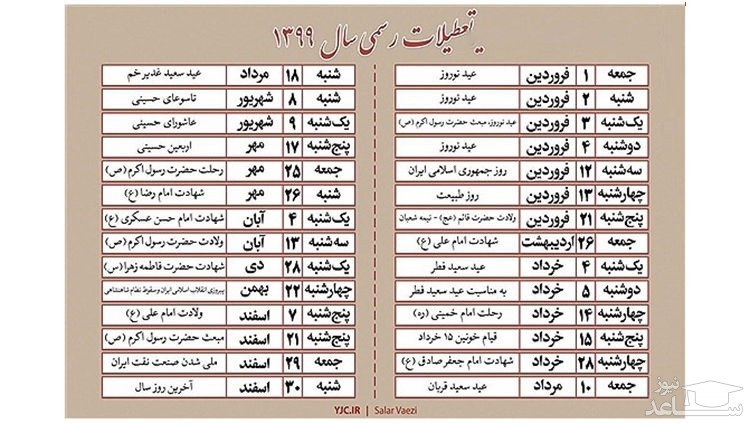 تعطیلات رسمی سال ۱۳۹۹
جمعه ۱ فروردین عید نوروز
شنبه ۲ فروردین عید نوروز
یک‌شنبه ۳ فروردین عید نوروز، مبعث حضرت رسول اکرم (ص)
دوشنبه ۴ فروردین عید نوروز
سه‌شنبه ۱۲ فروردین روز جمهوری اسلامی ایران
چهارشنبه ۱۳ فروردین روز طبیعت
پنج‌شنبه ۲۱ فروردین ولادت حضرت قائم (عج) - نیمه شعبان
جمعه ۲۶ اردیبهشت شهادت امام علی (ع)
یک‌شنبه ۴ خرداد عید سعید فطر
دوشنبه ۵ خرداد به مناسبت عید سعید فطر
چهارشنبه ۱۴ خرداد رحلت امام خمینی (ره)
پنج‌شنبه ۱۵ خرداد قیام خونین ۱۵ خرداد
چهارشنبه ۲۸ خرداد شهادت امام جعفر صادق (ع)
جمعه ۱۰ مرداد عید سعید قربان
شنبه ۱۸ مرداد عید سعید غدیر خم
شنبه ۸ شهریور تاسوعای حسینی
یک‌شنبه ۹ شهریور عاشورای حسینی
پنج‌شنبه ۱۷ مهر اربعین حسینی
جمعه ۲۵ مهر رحلت حضرت رسول اکرم (ص)
شنبه ۲۶ مهر شهادت امام رضا (ع)
یک‌شنبه ۴ آبان شهادت امام حسن عسکری (ع)
سه‌شنبه ۱۳ آبان ولادت حضرت رسول اکرم (ص)
یک‌شنبه ۲۸ دی شهادت حضرت فاطمه زهرا (س)
چهارشنبه ۲۲ بهمن پیروزی انقلاب اسلامی ایران و سقوط نظام شاهنشاهی
پنج‌شنبه ۷ اسفند ولادت امام علی (ع)
پنج‌شنبه ۲۱ اسفند مبعث حضرت رسول اکرم (ص)
جمعه ۲۹ اسفند ملی شدن صنعت نفت ایران
شنبه ۳۰ اسفند آخرین روز سال
YJC.IR | Salar Vaezi
نیوز
ساعد